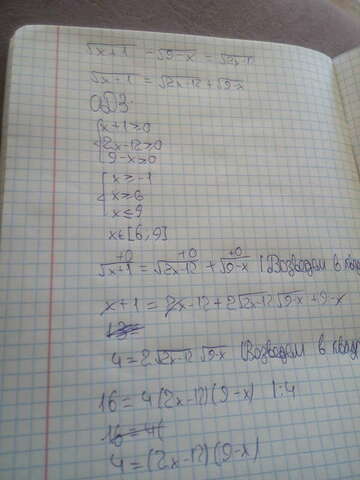 √x+1 - √9-x = √2x-12
√x+1 = √2x-12 + √9-x
ОДЗ:
{x+1≥0
2x-12≥0
9-x≥0
{x≥-1
x≥6
x≤9
x∈[6,9]
√x+1 = √2x-12 + √9-x | Возведем в
x+1 = 2x-12+2√2x-12 √9-x +9-x
4=2√2x-12 √9-x | Возведем в
16=4(2x-12)(9-x) |:4
16=4(
4=(2x-12)(9-x)